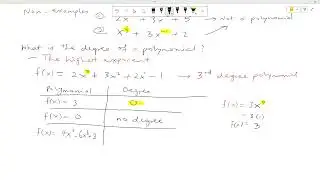 Non-examples
① 2x + 3x + 5 → Not a polynomial
② x + 3x + 2
What is the degree of a polynomial?
- The highest exponent
f(x) = 2x³ + 3x² + 2x - 1 → 3rd degree polynomial
Polynomial Degree
f(x) = 3 0
f(x) = 0 no degree
f(x) =
f(x) = 3x⁰
= 3(1)
f(x) = 3